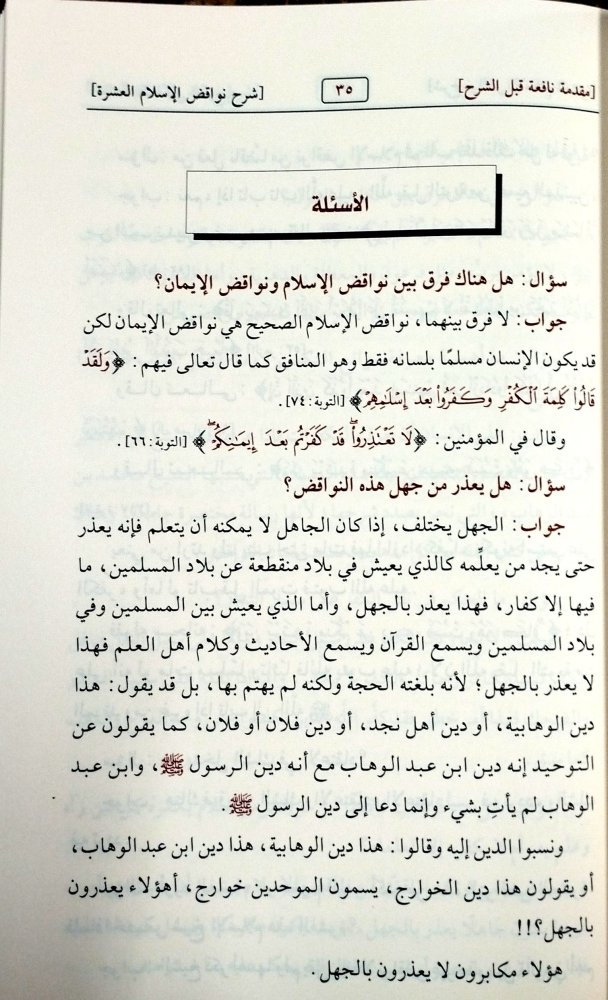 [مقدمة نافعة قبل الشرح] ٣٥ [شرح نواقض الإسلام العشرة]
الأسئلة
سؤال: هل هناك فرق بين نواقض الإسلام ونواقض الإيمان؟
جواب: لا فرق بينهما، نواقض الإسلام الصحيح هي نواقض الإيمان لكن
قد يكون الإنسان مسلمًا بلسانه فقط وهو المنافق كما قال تعالى فيهم: ﴿وَلَقَدْ
قَالُوا۟ كَلِمَةَ ٱلْكُفْرِ وَكَفَرُوا۟ بَعْدَ إِسْلَـٰمِهِمْ﴾ [التوبة: ٧٤].
وقال في المؤمنين: ﴿لَا تَعْتَذِرُوا۟ ۖ قَدْ كَفَرْتُم بَعْدَ إِيمَـٰنِكُمْ ۖ﴾ [التوبة: ٦٦].
سؤال: هل يعذر من جهل هذه النواقض؟
جواب: الجهل يختلف، إذا كان الجاهل لا يمكنه أن يتعلم فإنه يعذر
حتى يجد من يعلِّمه كالذي يعيش في بلاد منقطعة عن بلاد المسلمين، ما
فيها إلا كفار، فهذا يعذر بالجهل، وأما الذي يعيش بين المسلمين وفي
بلاد المسلمين ويسمع القرآن ويسمع الأحاديث وكلام أهل العلم فهذا
لا يعذر بالجهل؛ لأنه بلغته الحجة ولكنه لم يهتم بها، بل قد يقول: هذا
دين الوهابية، أو دين أهل نجد، أو دين فلان أو فلان، كما يقولون عن
التوحيد إنه دين ابن عبد الوهاب مع أنه دين الرسول ﷺ، وابن عبد
الوهاب لم يأتِ بشيء وإنما دعا إلى دين الرسول ﷺ.
ونسبوا الدين إليه وقالوا: هذا دين الوهابية، هذا دين ابن عبد الوهاب،
أو يقولون هذا دين الخوارج، يسمون الموحدين خوارج، أهؤلاء يعذرون
بالجهل؟!!
هؤلاء مكابرون لا يعذرون بالجهل.